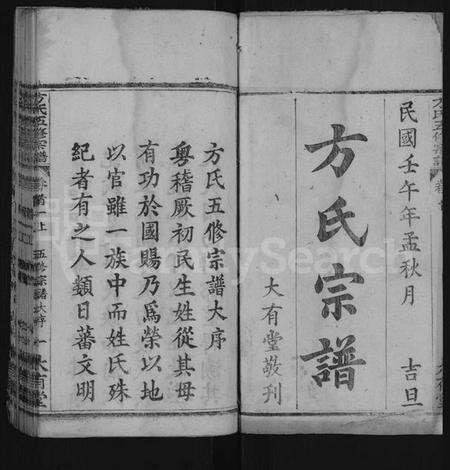 民國壬午年孟秋月 吉旦
方氏宗譜
大有堂敬刊
方氏五修宗譜大序
粵稽厥初民生姓從其母
有功於國賜乃為榮以地
以官雖一族中而姓氏殊
紀者有之人類日蕃文明
方氏五修宗譜 卷首上 五修宗譜大序 一 大有堂
MySearch